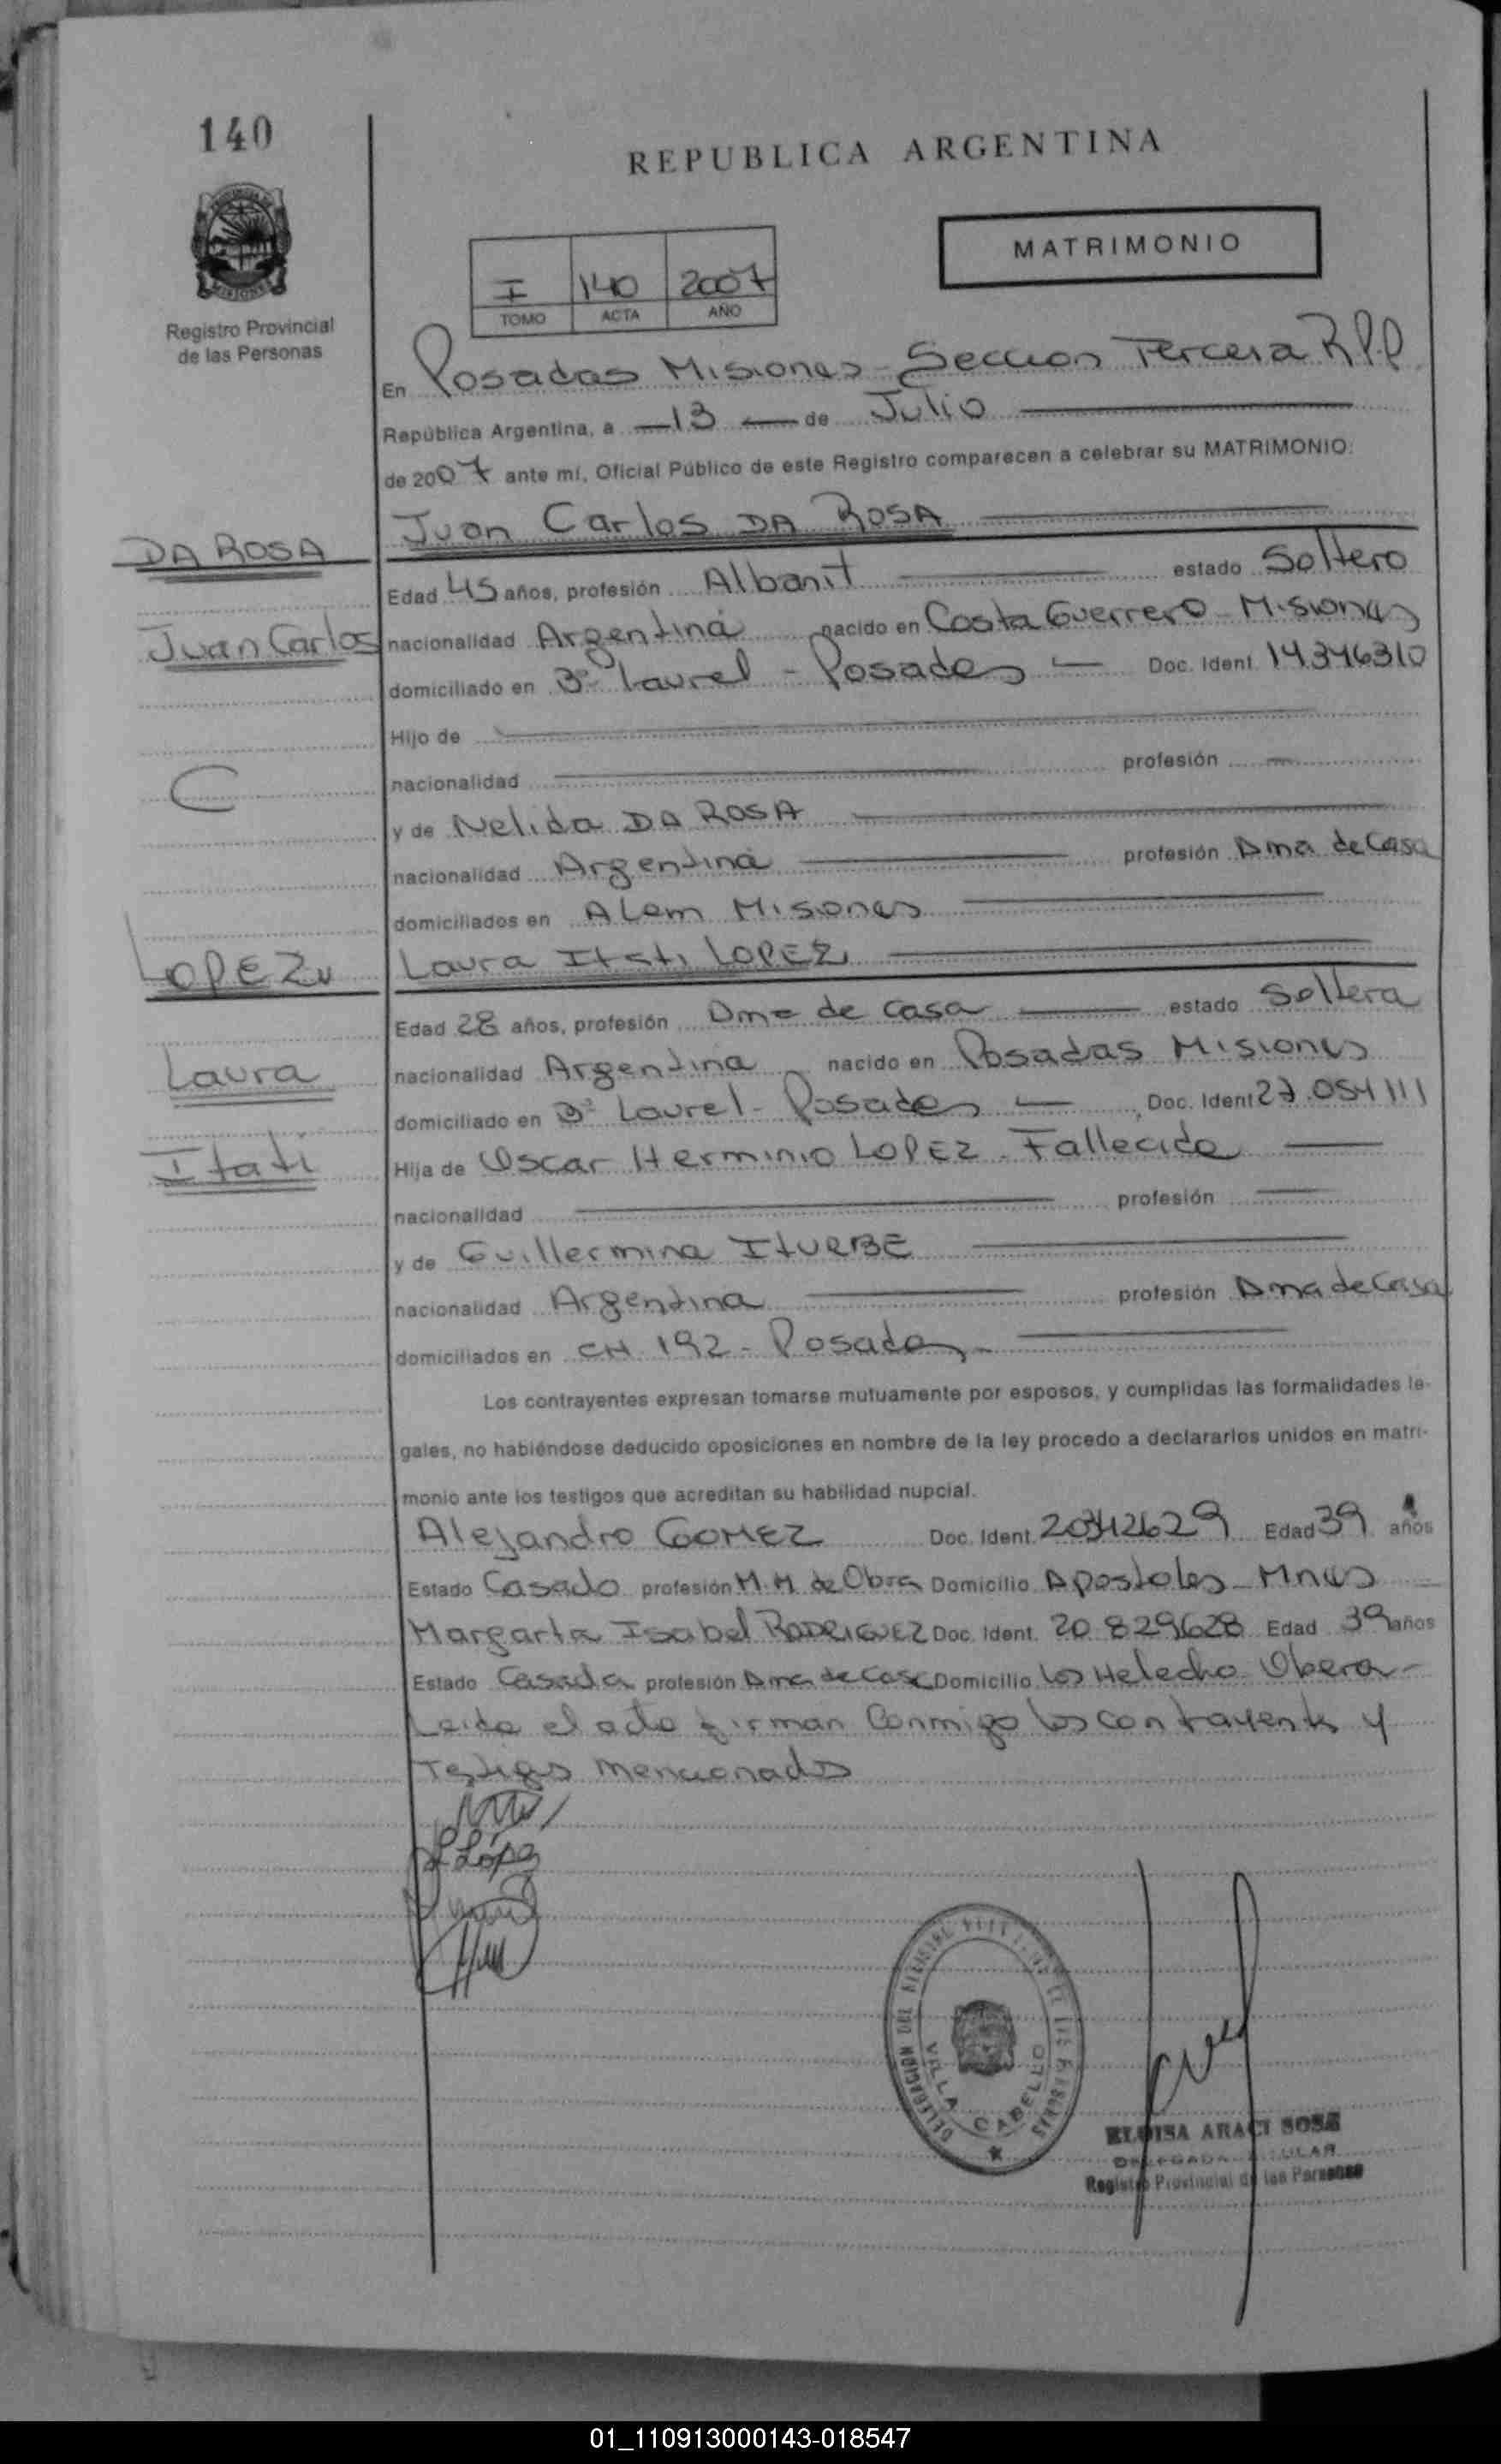 140
REPUBLICA ARGENTINA
MATRIMONIO
I 140 2007
TOMO ACTA AÑO
Registro Provincial
de las Personas
En Posadas Misiones - Seccion Tercera R.P.P
República Argentina, a 13 de Julio
de 2007 ante mí, Oficial Público de este Registro comparecen a celebrar su MATRIMONIO:
DA ROSA
Juan Carlos DA ROSA
Edad 45 años, profesión Albanil estado Soltero
Juan Carlos
nacionalidad Argentina nacido en Costa Guerrero - Misiones
domiciliado en Bº Laurel - Posadas Doc. Ident. 14346310
Hijo de
nacionalidad profesión
C
y de Nelida DA ROSA
nacionalidad Argentina profesión Ama de Casa
domiciliados en Alem Misiones
LOPEZ
Laura Itati LOPEZ
Edad 28 años, profesión Ama de casa estado Soltera
Laura
nacionalidad Argentina nacido en Posadas Misiones
domiciliado en Bº Laurel - Posadas Doc. Ident 27.054111
Itati
Hija de Oscar Herminio LOPEZ - Fallecido
nacionalidad profesión
y de Guillermina ITURBE
nacionalidad Argentina profesión Ama de Casa
domiciliados en CH 192 - Posadas
Los contrayentes expresan tomarse mutuamente por esposos, y cumplidas las formalidades le-
gales, no habiéndose deducido oposiciones en nombre de la ley procedo a declararlos unidos en matri-
monio ante los testigos que acreditan su habilidad nupcial.
Alejandro GOMEZ Doc. Ident. Edad 39 años
Estado Casado profesión M.M de Obra Domicilio Apostoles - Mnes
Margarita Isabel RODRIGUEZ Doc. Ident. 20 829628 Edad 39 años
Estado Casada profesión Ama de Casa Domicilio Los Helecho Obera -
Leida el acta firman Conmigo los contrayentes y
Testigos mencionados
López
DELEGACION DEL REGISTRO DE LAS PERSONAS
VILLA CABELLO
ELOISA ARACI SOSA
DELEGADA TITULAR
Registro Provincial de las Personas
01_110913000143-018547